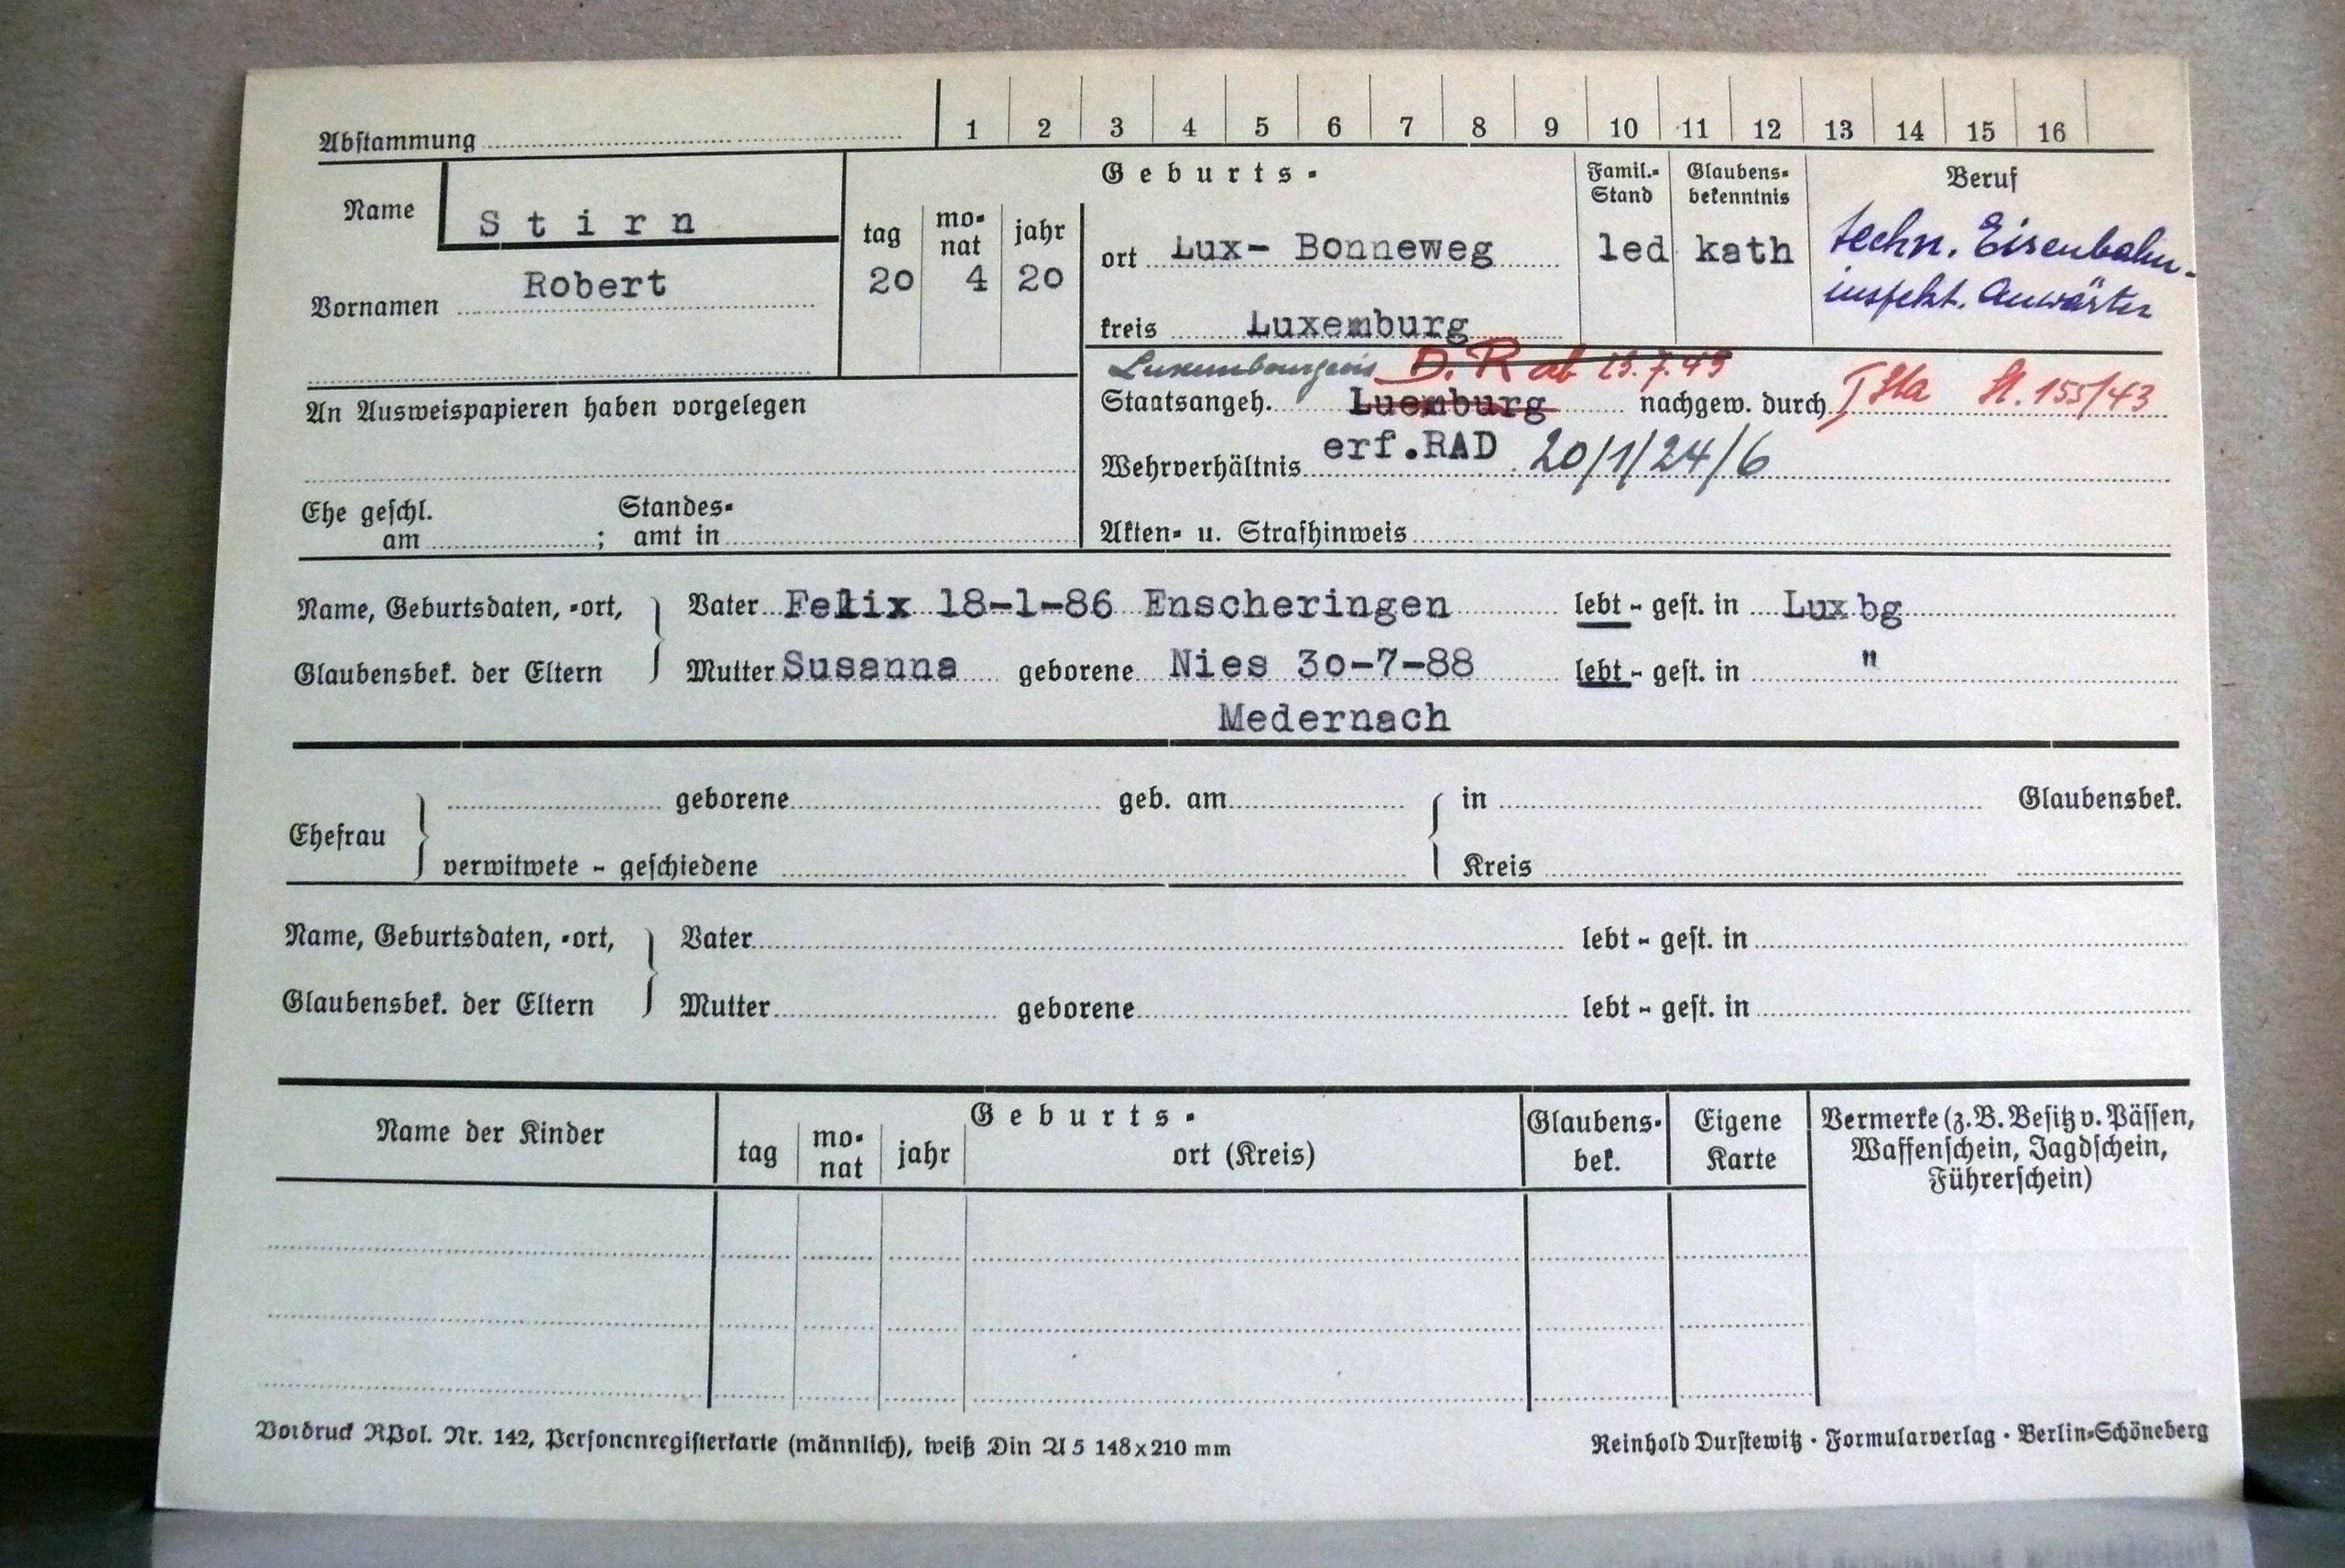 Abstammung 1 2 3 4 5 6 7 8 9 10 11 12 13 14 15 16
Name Stirn
Vornamen Robert
Geburts-
tag monat jahr
20 4 20
ort Lux- Bonneweg
kreis Luxemburg
Famil.-Stand
led
Glaubens-bekenntnis
kath
Beruf
techn. Eisenbahn-
inspekt. Anwärter
An Ausweispapieren haben vorgelegen
Luxembourgeois D.R ab
Staatsangeh. Luemburg nachgew. durch St. 155/43
Wehrverhältnis erf.RAD 20/1/24/6
Ehe geschl. am ; Standes-amt in
Akten- u. Strafhinweis
Name, Geburtsdaten, -ort, Vater Felix 18-1-86 Enscheringen lebt - gest. in Lux bg
Glaubensbek. der Eltern Mutter Susanna geborene Nies 30-7-88 lebt - gest. in "
Medernach
Ehefrau geborene geb. am in Glaubensbek.
verwitwete - geschiedene Kreis
Name, Geburtsdaten, -ort, Vater lebt - gest. in
Glaubensbek. der Eltern Mutter geborene lebt - gest. in
Name der Kinder
Geburts-
tag monat jahr ort (Kreis)
Glaubens-bek.
Eigene Karte
Vermerke (z.B. Besitz v. Pässen,
Waffenschein, Jagdschein,
Führerschein)
Vordruck RPol. Nr. 142, Personenregisterkarte (männlich), weiß Din A 5 148x210 mm
Reinhold Durstewitz · Formularverlag · Berlin-Schöneberg